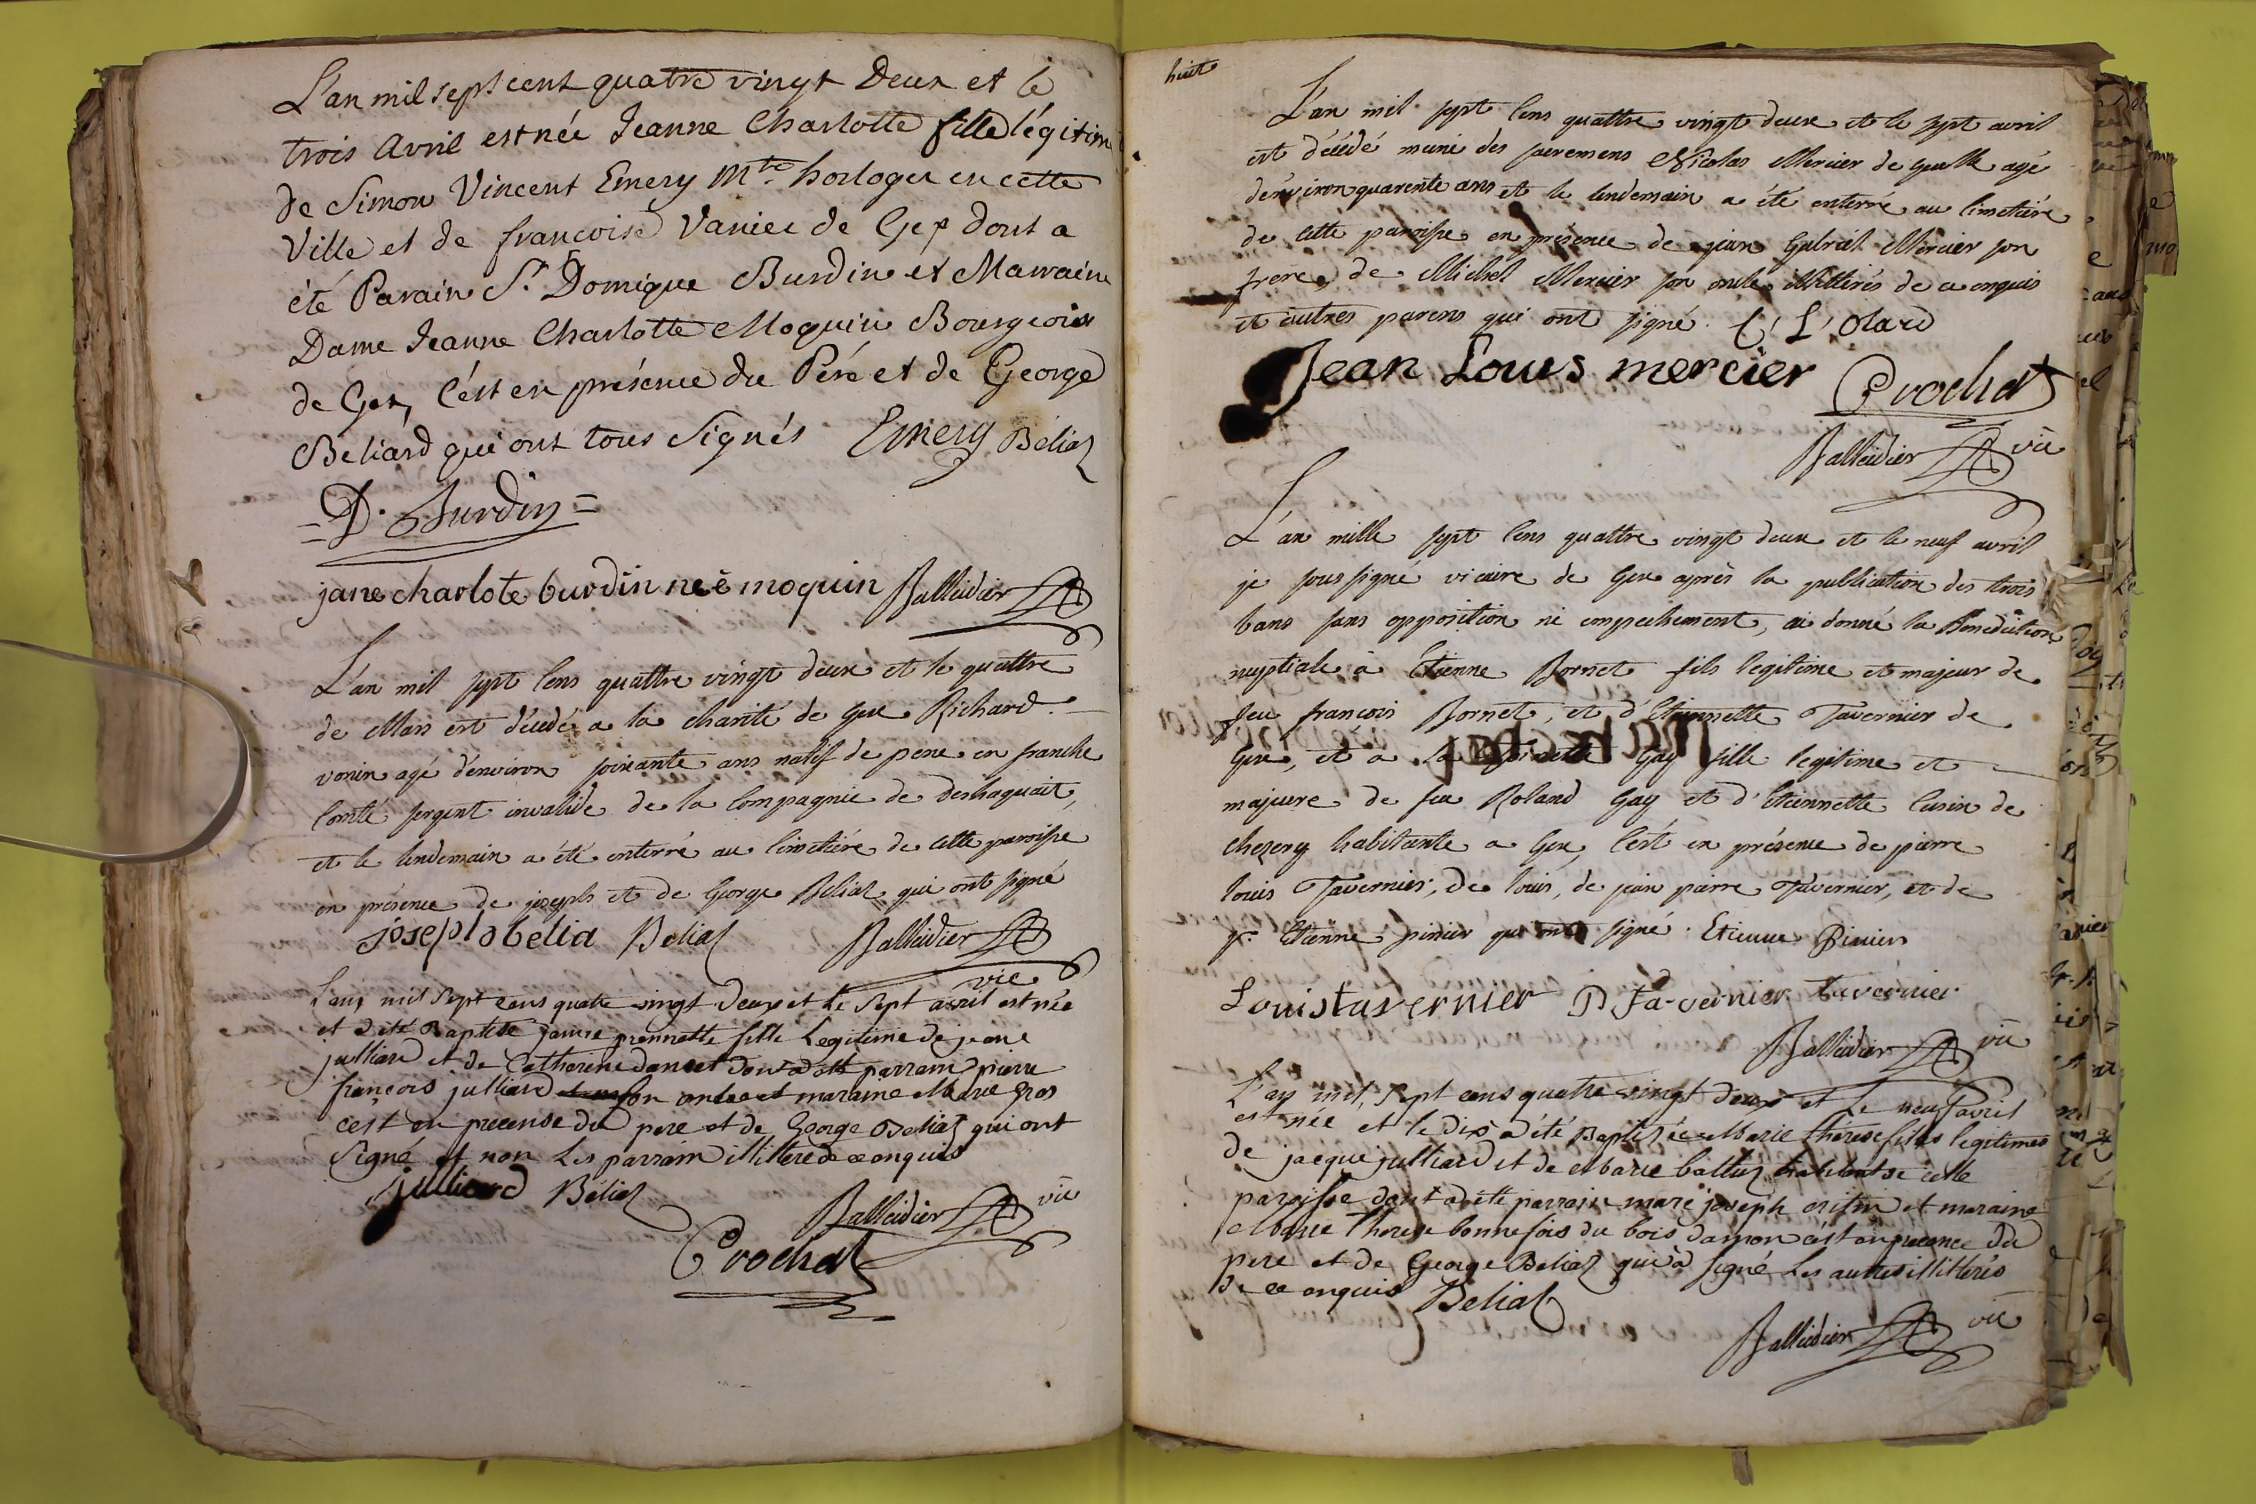 L'an mil sept cent quatre vingt Deux et le
trois Avril est née Jeanne Charlotte fille légitime
de Simon Vincent Emery Mtre horloger en cette
Ville et de francoise Vaniee de Gex dont a
été Parain Sr Domique Burdin et Marraine
Dame Jeanne Charlotte Moquin Bourgeois
de Gex, C'est en présence du Pére et de George
Beliard qui ont tous Signés Emery Beliaz
=D. Burdin=
jane charlote burdin neé moquin Balleidier
L'an mil sept cens quattre vingt deux et le quattre
de Mars est décédé a la charité de Gex Richard
vonin agé d'environ soixante ans natif de pene en franche
Comté sergent invalide de la Compagnie de deshaquait,
et le lendemain a été enterré au Cimetiére de cette paroisse
en présence de joseph et de George Beliaz qui ont signé
joseph belia Beliaz Balleidier
vic
L'an mil Sept cens quatre vingt Deux et le Sept avril est née
et a été Baptisée janne prennette fille Legitime de jeane
julliard et de Catherine dont a été parrain pierre
françois julliard son oncle et maraine Marie gros
cest en precense du pere et de George Beliaz qui ont
Signé et non les parrain illitere de ce enquis
julliard Béliaz
Balleidier vic
Crochat
huit
L'an mil sept Cens quattre vingt deux et le sept avril
est décédé muni des sacremens Nicolas Mercier de Gex agé
d'environ quarente ans et le lendemain a été enterré au Cimetiére
de cette paroisse en présence de jean Gabriel Mercier son
frere, de Michel Mercier son oncle illittérés de ce enquis
et autres parens qui ont signé. C' L' Olard
Jean Louis mercier Crochat
Balleidier vic
L'an mille sept Cens quattre vingt deux et le neuf avril
je soussigné vicaire de Gex aprés la publication des trois
bans sans opposition ni empechement, ai donné la Bénédiction
nuptiale a Étienne Bornet fils legitime et majeur de
feu françois Bornet, et d'Etiennette Tavernier de
Gex, et a Gay fille legitime et
majeure de feu Roland Gay et d'Etiennette Cusin de
chezery habitante a Gex, C'est en présence de pierre
louis Tavernier, de louis, de jean pierre Tavernier, et de
Sr Etienne pinier qui ont signé. Etienne Pinier
Louis tavernier P Ta-vernier tavernier
Balleidier vic
L'an mil sept cens quatre vingt deux et Le neuf avril
est née et le Dix a été Baptizée Marie thérese filles legitimes
de jacque julliard et de Marie habitant de cette
paroisse dont a été parrain marc joseph et maraine
Marie Therese bonnefois du bois damon cest en precence du
pere et de George Beliaz qui a signé Les autres illitérés
De ce enquis Beliaz
Balleidier vic